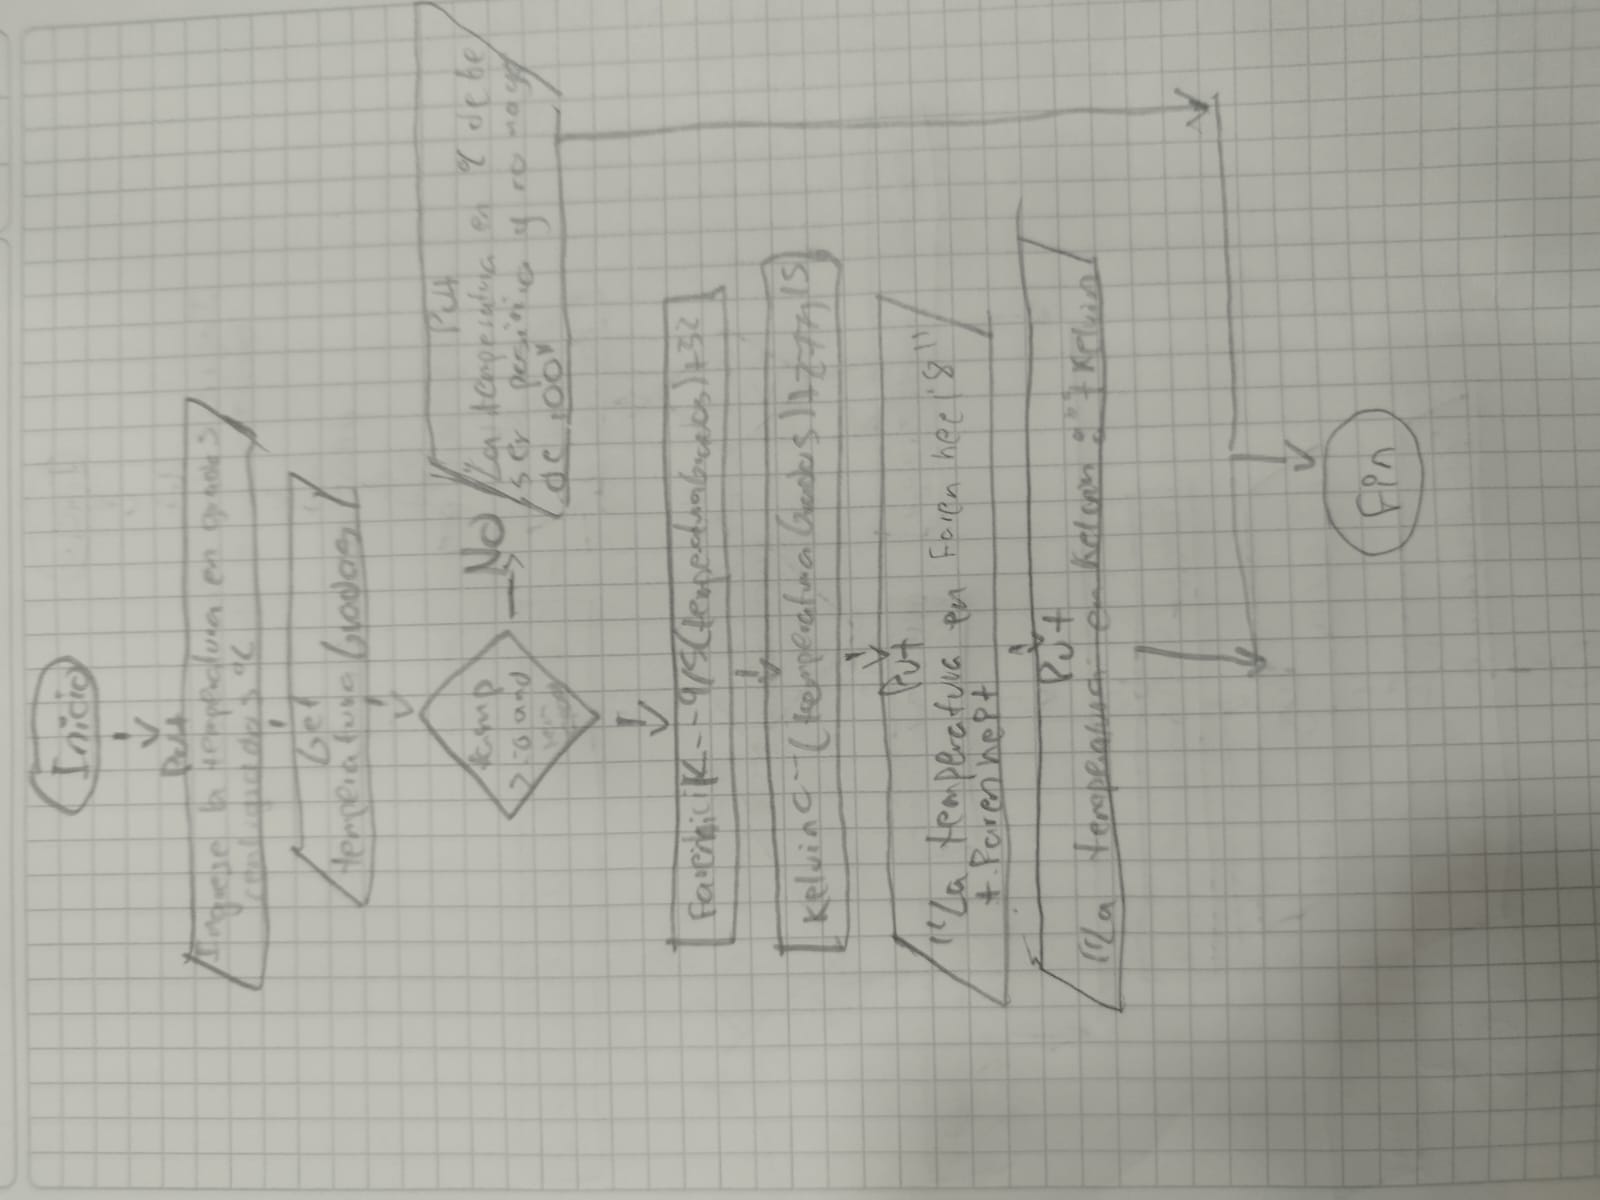 Inicio
Put
Ingrese la temperatura en grados
°C
Get
temperatura Grados
temp
>=0 and
No
Put
"La temperatura en °C debe
ser y no mayor
de 100"
<- 9/5(temperaturaGrados)+32
Kelvin <- (temperatura Grados)+277,15
Put
"La temperatura en Farenheit es"
+ Farenheit
Put
"La temperatura en Kelvin " + Kelvin
Fin